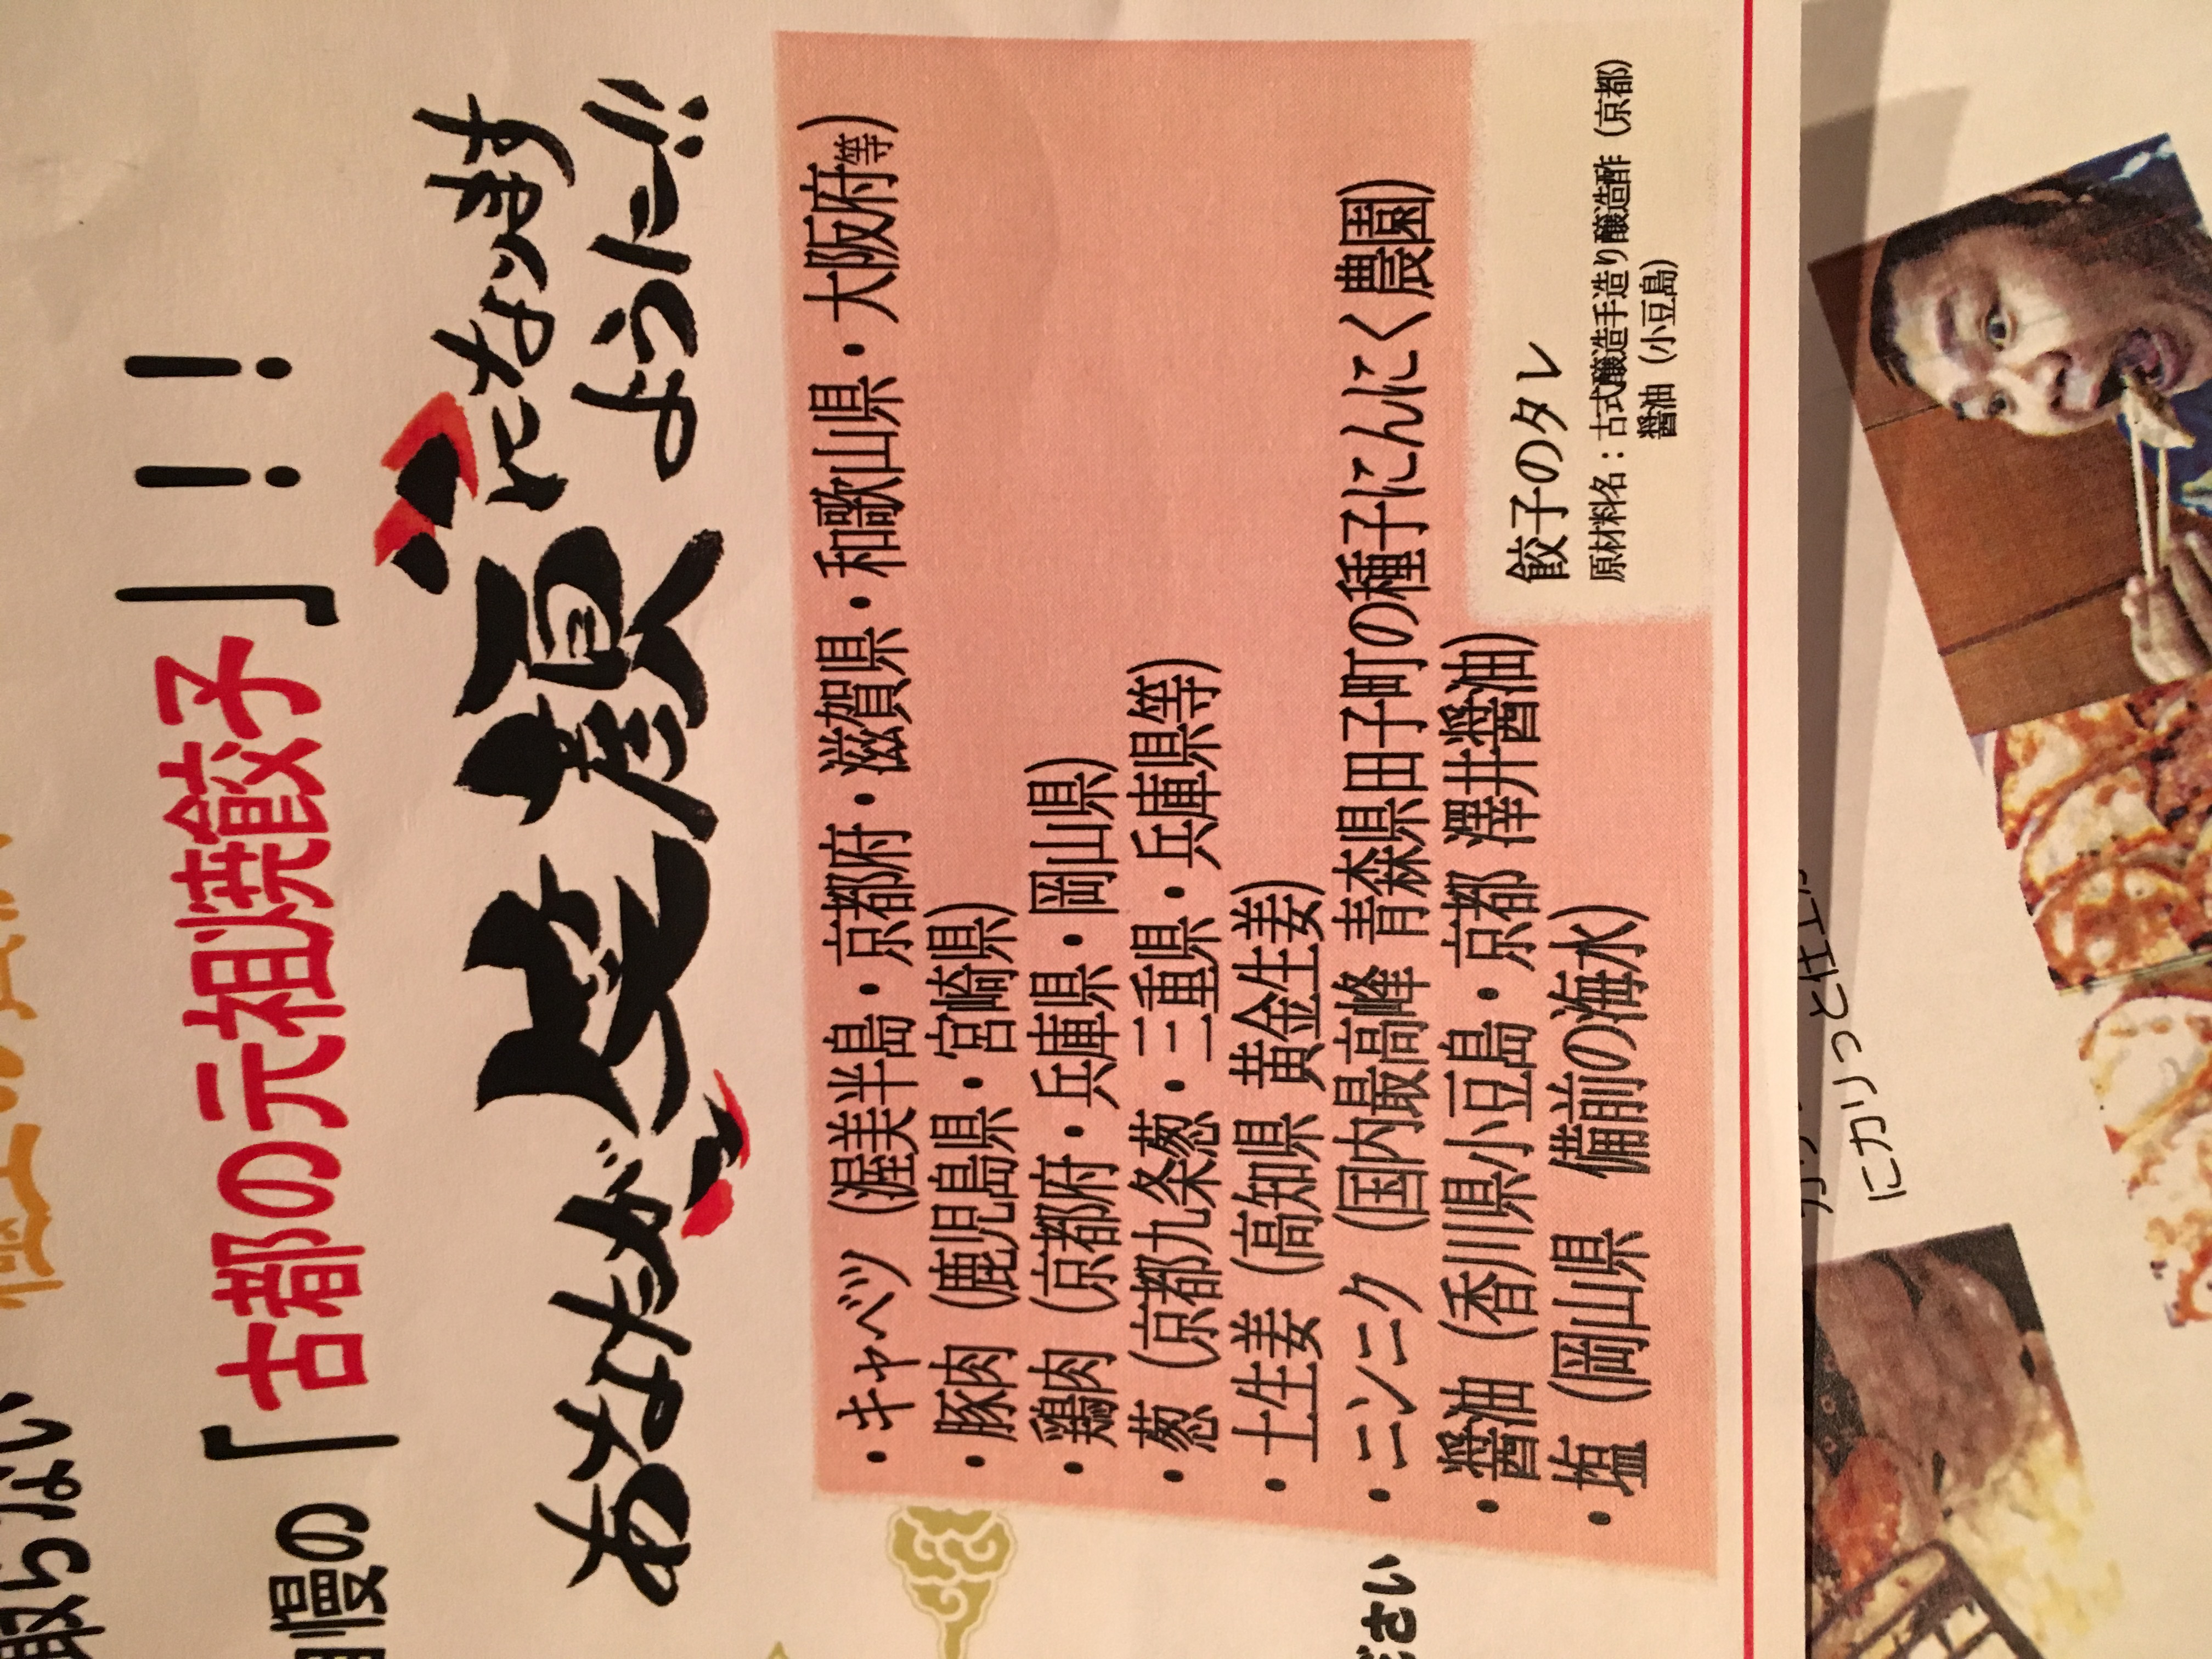 取らない
自慢の「古都の元祖焼餃子」!!
あなたが笑顔になります
ように!!
・キャベツ（渥美半島・京都府・滋賀県・和歌山県・大阪府等）
・豚肉（鹿児島県・宮崎県）
・鶏肉（京都府・兵庫県・岡山県）
・葱（京都九条葱・三重県・兵庫県等）
・土生姜（高知県 黄金生姜）
・ニンニク（国内最高峰 青森県田子町の種子にんにく農園）
・醤油（香川県小豆島・京都 澤井醤油）
・塩（岡山県 備前の海水）
餃子のタレ
原材料名：古式醸造手造り醸造酢（京都）
醤油（小豆島）
ださい
にカリっと仕上